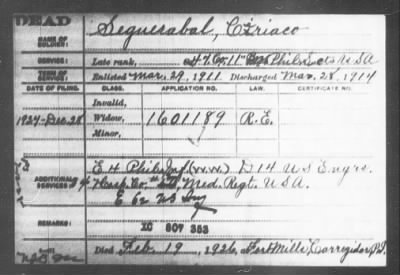 DEAD
NAME OF SOLDIER: Seguerabal, Ciriaco
SERVICE: Late rank, 47 Co. 11" Philn Scts USA
TERM OF SERVICE: Enlisted Mar. 29, 1911 Discharged Mar. 28, 1914
DATE OF FILING. CLASS. APPLICATION NO. LAW. CERTIFICATE NO.
Invalid,
1927-Dec-28 Widow, 1601189 R.E.
Minor,
E. H Phil Inf (W.W.) D 14 U S Engrs.
ADDITIONAL SERVICES: Hosp. Co. Med. Regt. U.S.A.
E 62 US Inf
REMARKS: XC 807 353
Died Feb. 19, 1926, Fort Mills, Corregidor, P.I.